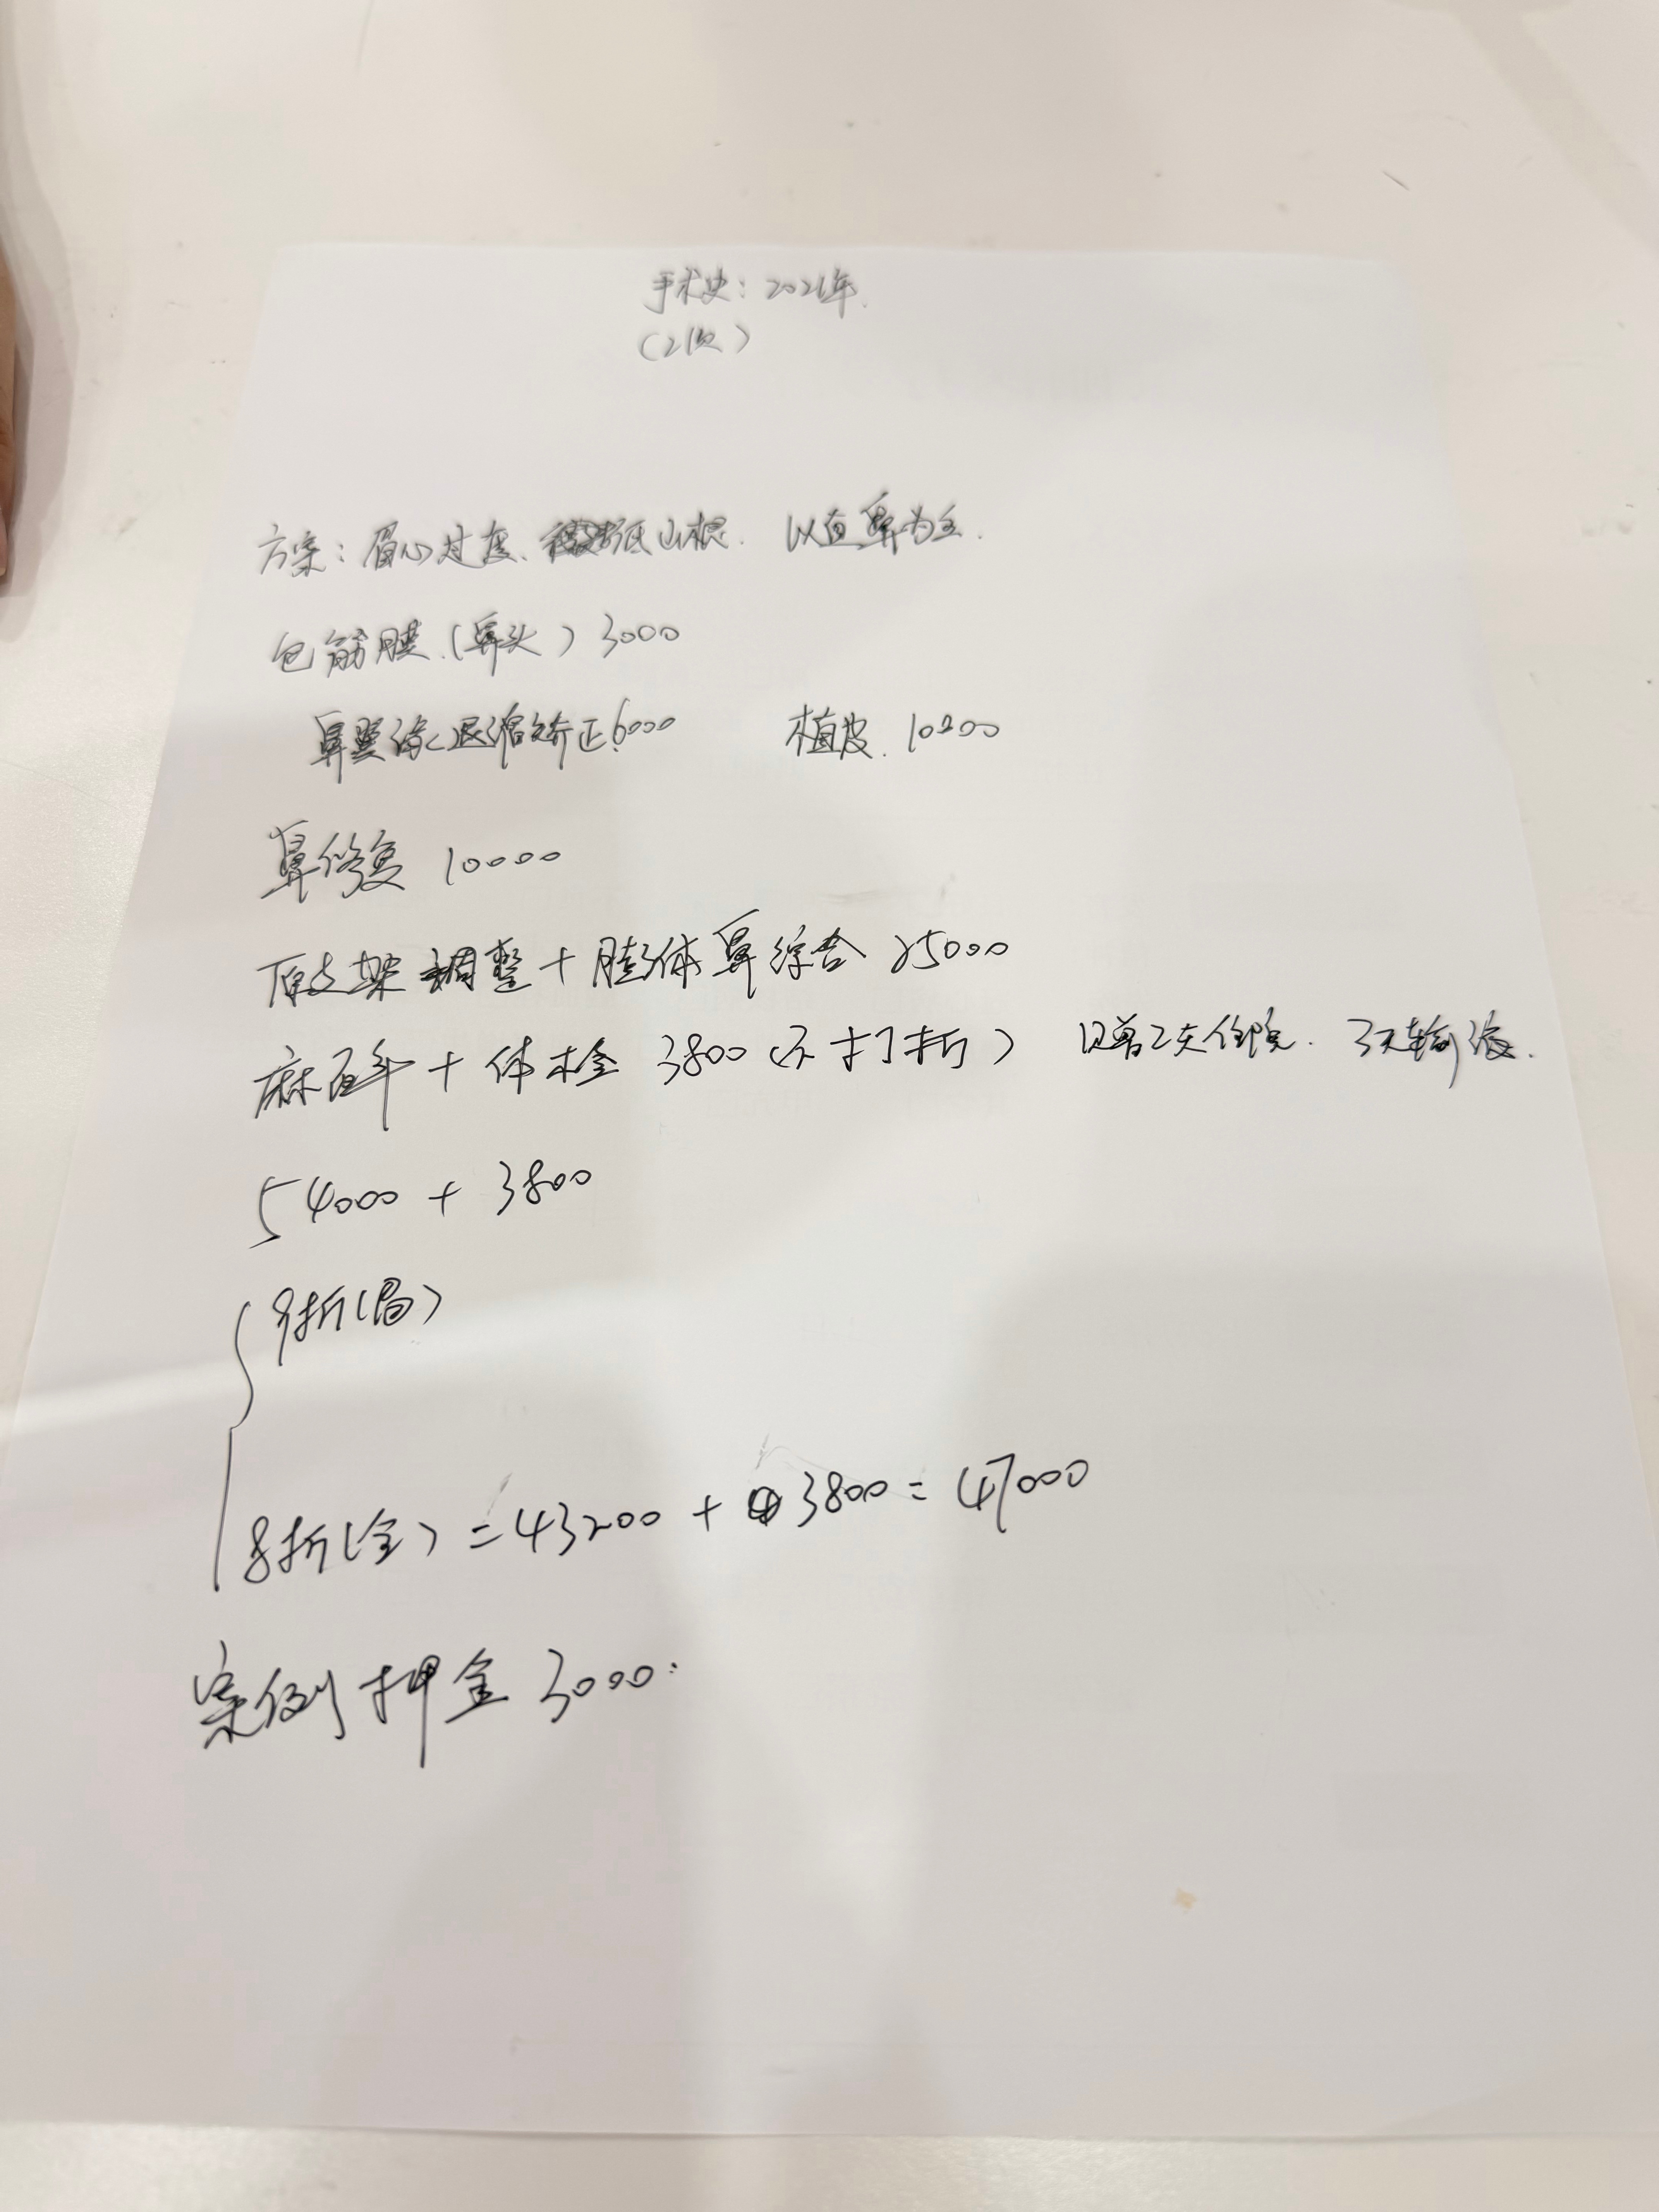 手术史：2021年.
（2次）
方案：眉心过度、低山根. 以直鼻为主.
包筋膜.（鼻头）3000
鼻翼缘退缩矫正6000 植皮. 10000
鼻修复 10000
原支架调整+膨体鼻综合 25000
麻醉+体检 3800（不打折） 赠2天住院. 3天输液.
54000+3800
9折（眉）
8折（全）=43200+3800=47000
案例押金 3000.